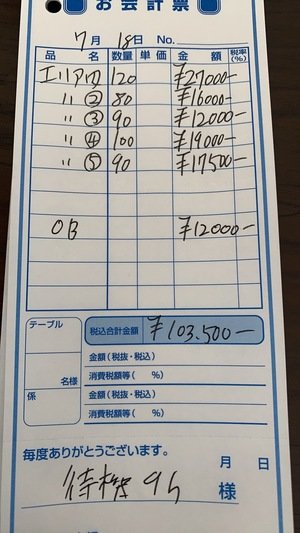 お会計票
7月 18日 No.
品名 数量 単価 金額 税率(%)
エリア① 120 ¥27000-
〃 ② 80 ¥16000-
〃 ③ 90 ¥12000-
〃 ④ 100 ¥19000-
〃 ⑤ 90 ¥17500-
OB ¥12000-
テーブル 税込合計金額 ¥103.500-
金額(税抜・税込)
名様 消費税額等( %)
係 金額(税抜・税込)
消費税額等( %)
毎度ありがとうございます。 月 日
待機 9h 様